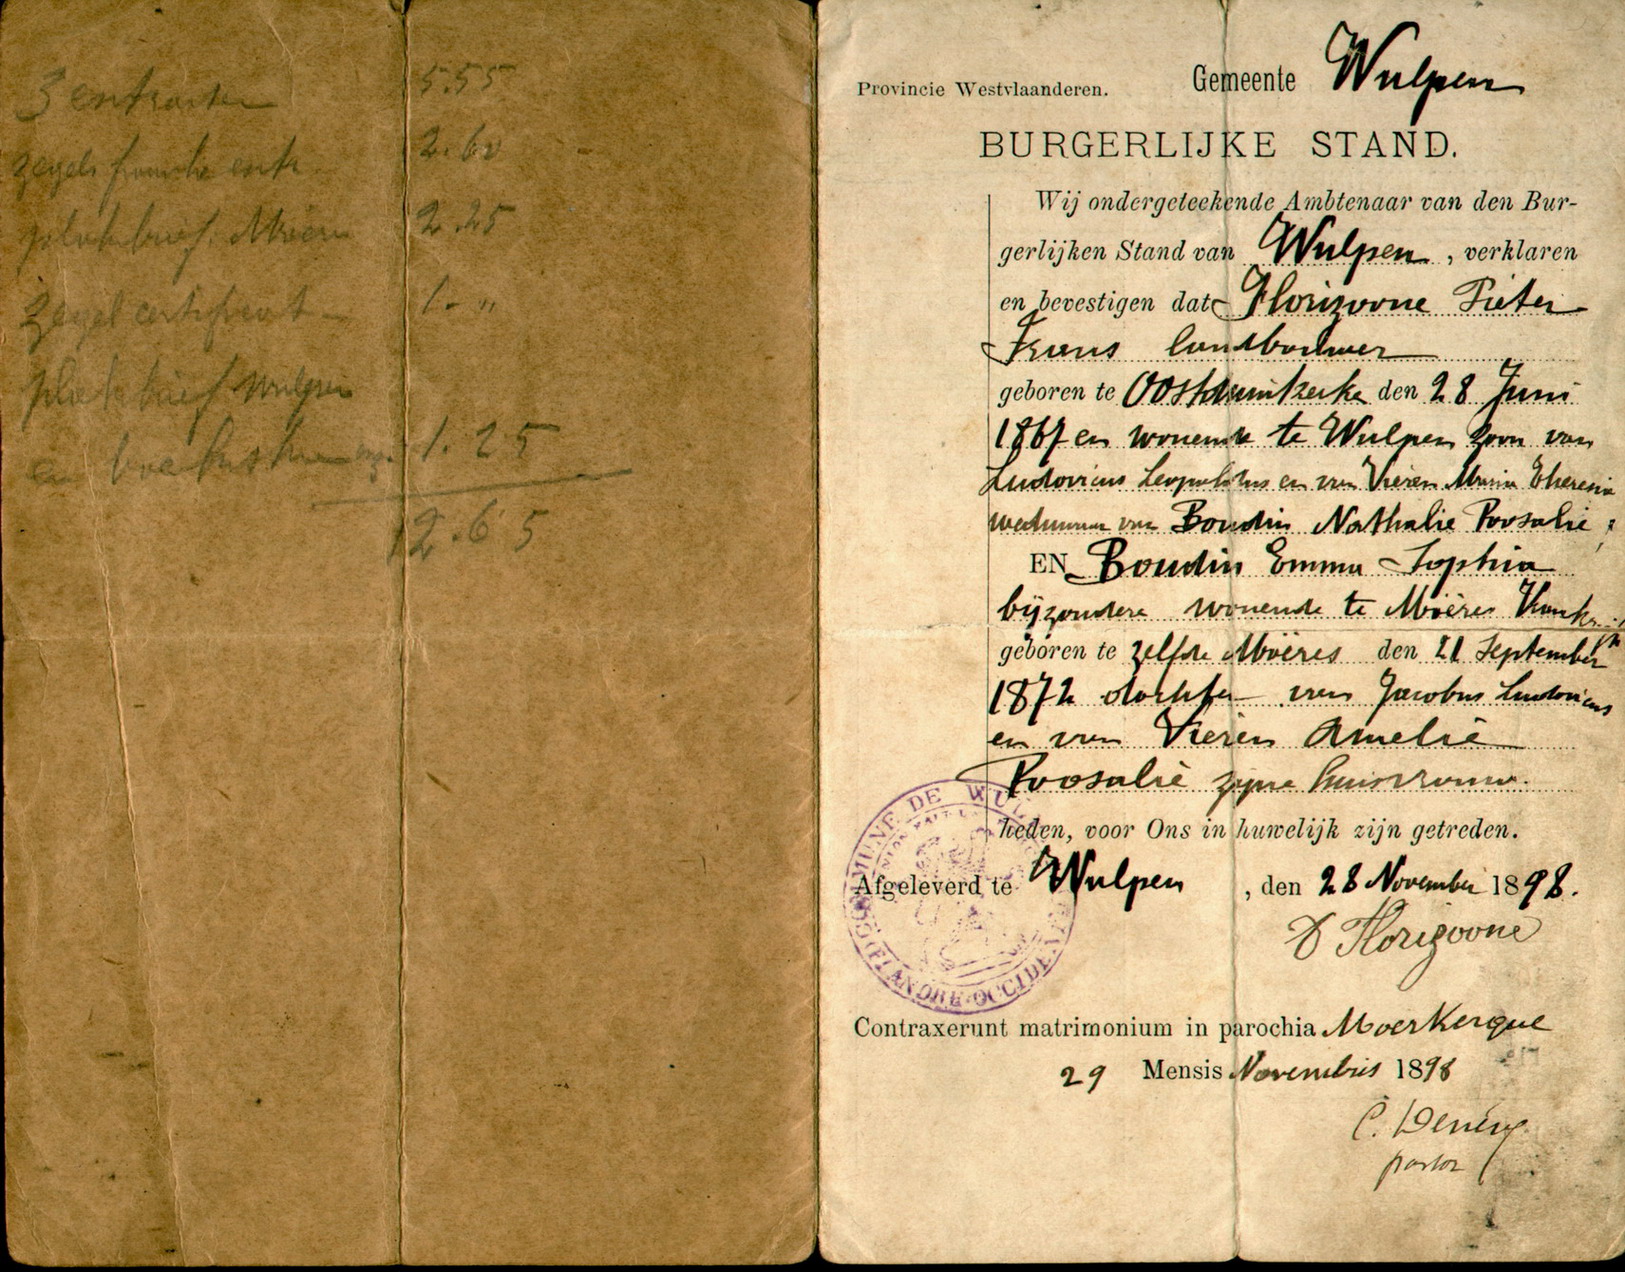 3 extracten 5.55
zegels fransche extr. 2.60
plakbrief. Moëres 2.25
zegel certificaat - 1. "
plakbrief Wulpen
en 1.25
12.65
Provincie Westvlaanderen. Gemeente Wulpen
BURGERLIJKE STAND.
Wij ondergeteekende Ambtenaar van den Bur-
gerlijken Stand van Wulpen, verklaren
en bevestigen dat Florizoone Pieter
Frans landbouwer
geboren te Oostduinkerke den 28 Juni
1867 en wonende te Wulpen zoon van
Ludovicus Leopoldus en van Vieren Maria Theresia
weduwaar van Boudin Nathalie Roosalie;
EN Boudin Emma Sophia
bijzondere wonende te Moëres
geboren te zelfde Moëres den 21 September
1872 dochter van Jacobus Ludovicus
en van Vieren Amelie
Roosalie zijne huisvrouw.
heden, voor Ons in huwelijk zijn getreden.
Afgeleverd te Wulpen, den 28 November 1898.
D Florizoone
COMMUNE DE WUL
(FLANDRE-OCCIDEN
Contraxerunt matrimonium in parochia Moerkerque
29 Mensis Novembris 1898
pastor